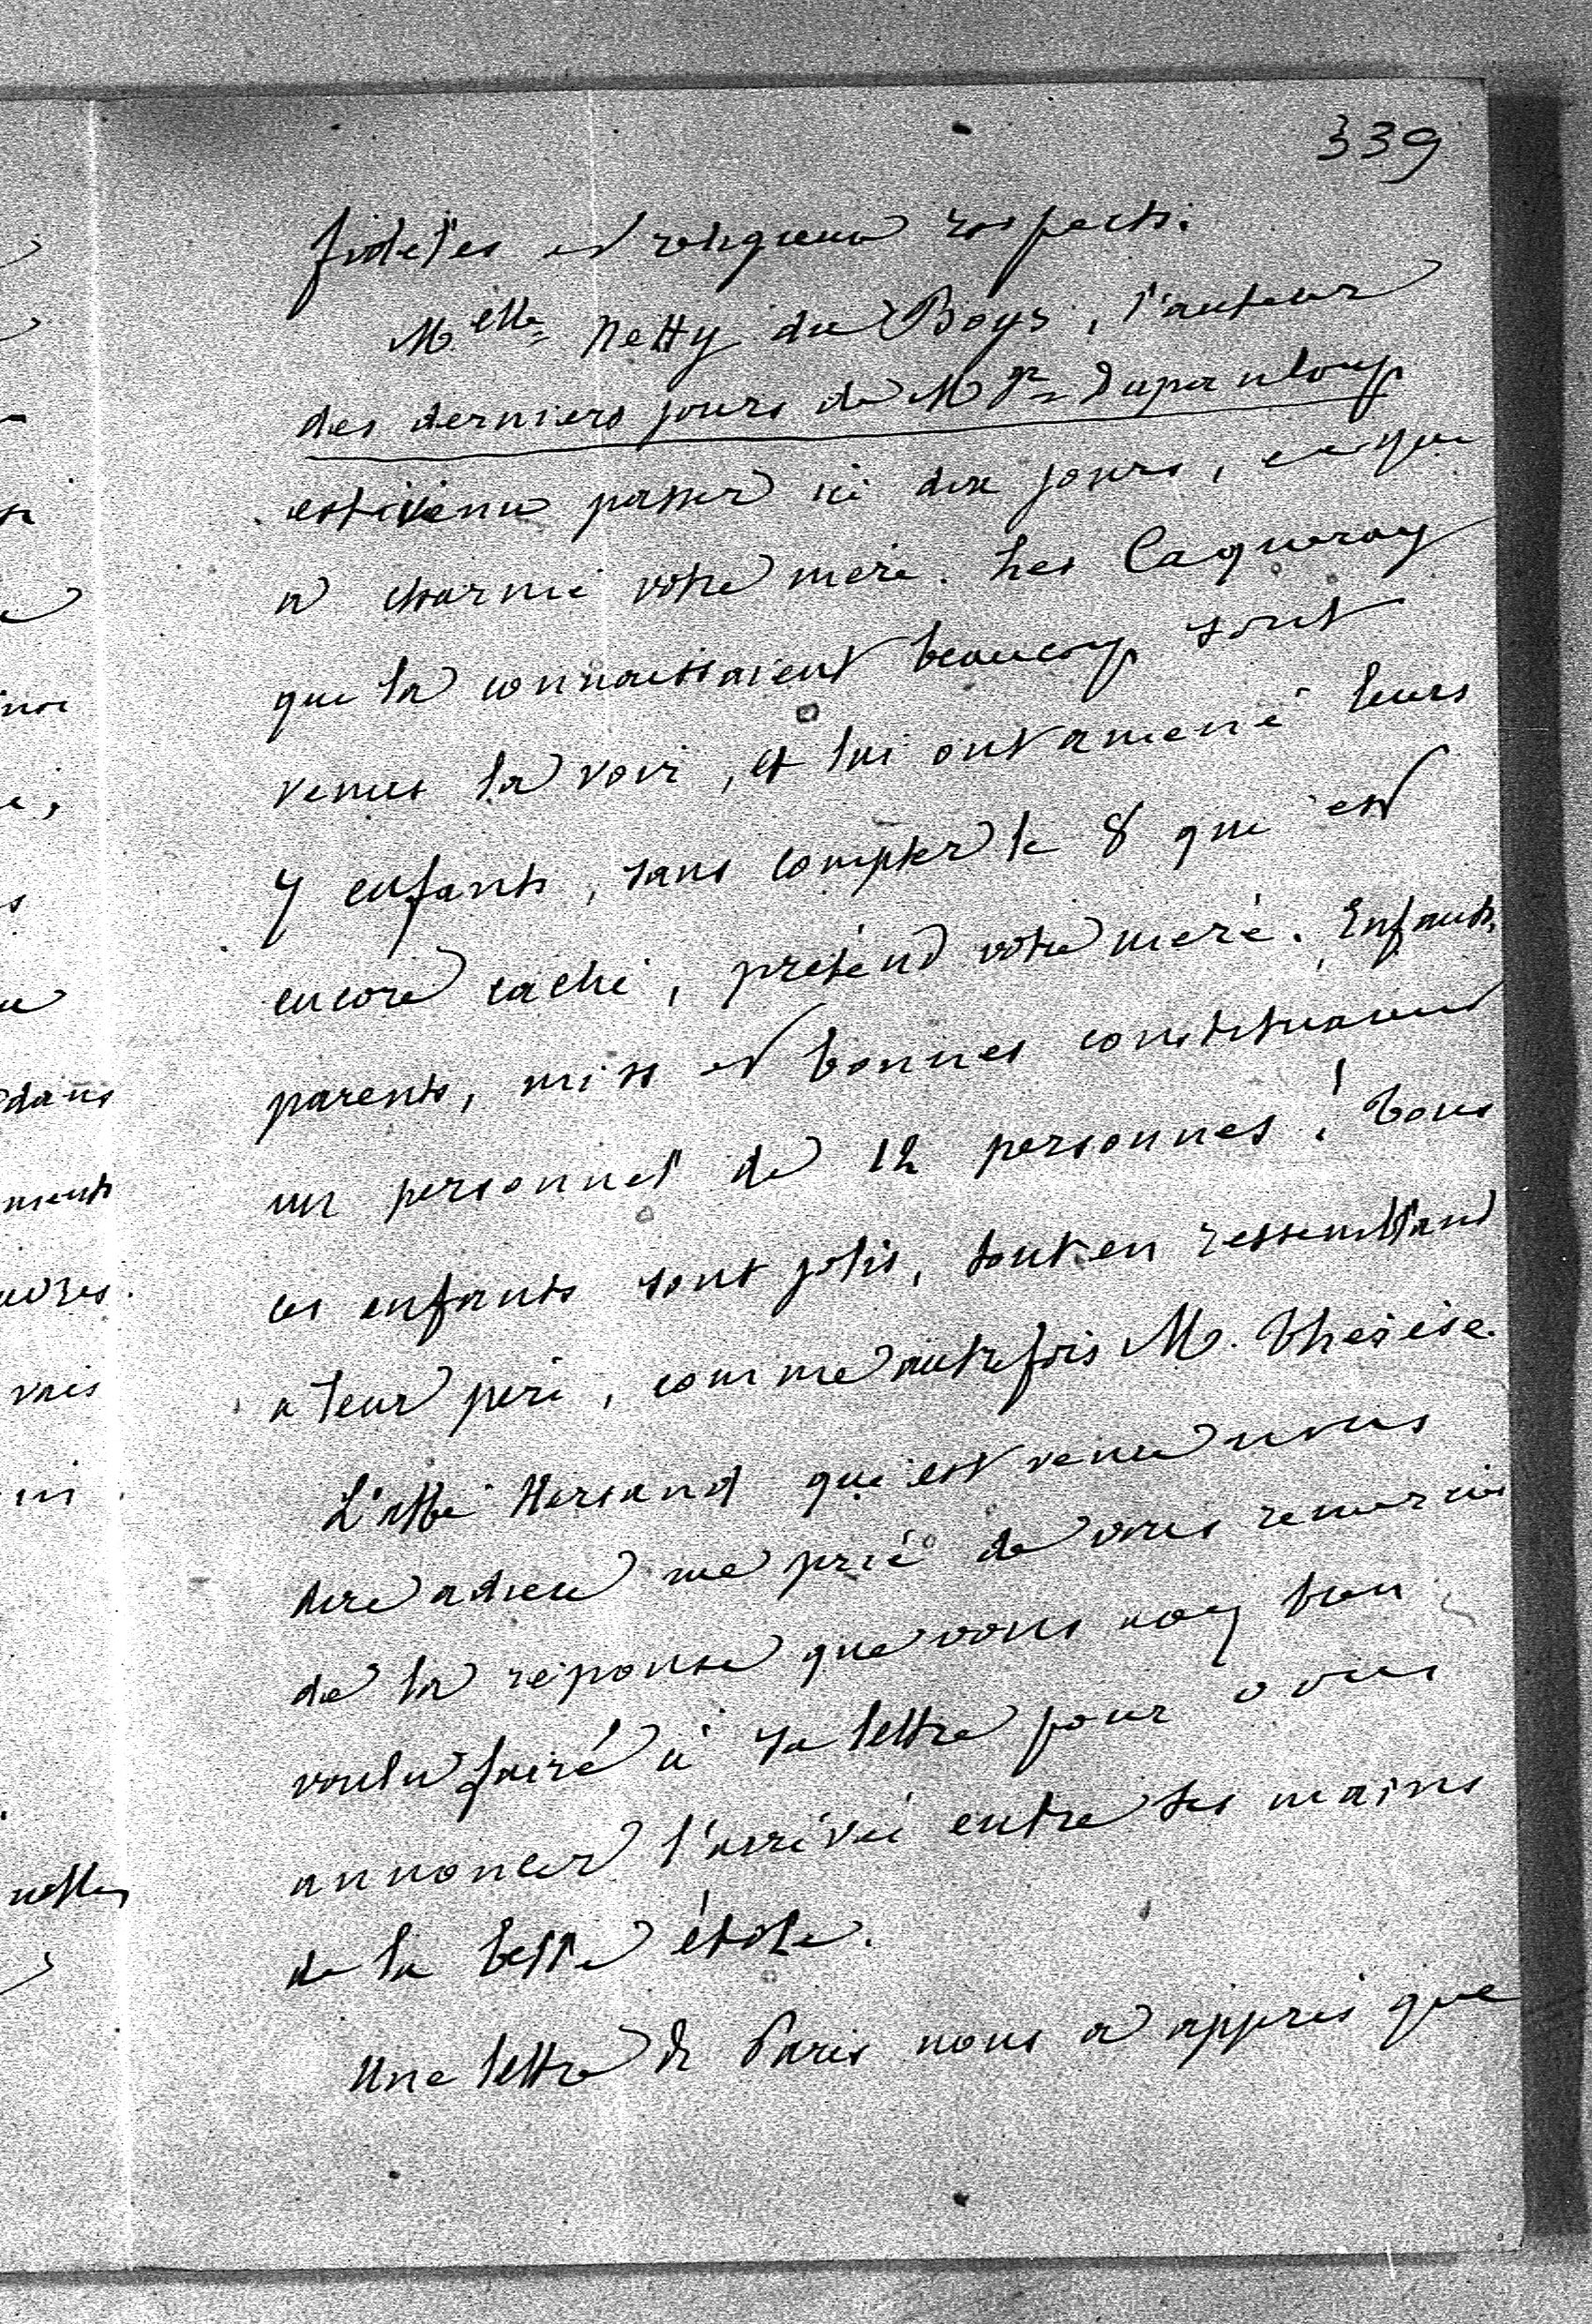 339
fidèles et religieux respects.
Melle Netty du Boys, l'auteur
des derniers jours de Mgr Dupanloup
est venue passer ici dix jours, ce qui
a charmé votre mère. Les Caqueray
qui la connaissaient beaucoup sont
venus la voir, et lui ont amené leurs
7 enfants, sans compter le 8 qui est
encore caché, prétend votre mère. Enfants,
parents, miss et bonnes constituaient
un personnel de 12 personnes ! Tous
ces enfants sont jolis, tout en ressemblant
a leur père, comme autrefois M. Thérèse.
L'abbé Hersand qui est venu nous
dire adieu me prie de vous remercier
de la réponse que vous avez bien
voulu faire à sa lettre pour vous
annoncer l'arrivée entre ses mains
de la belle étole.
Une lettre de Paris nous a appris que